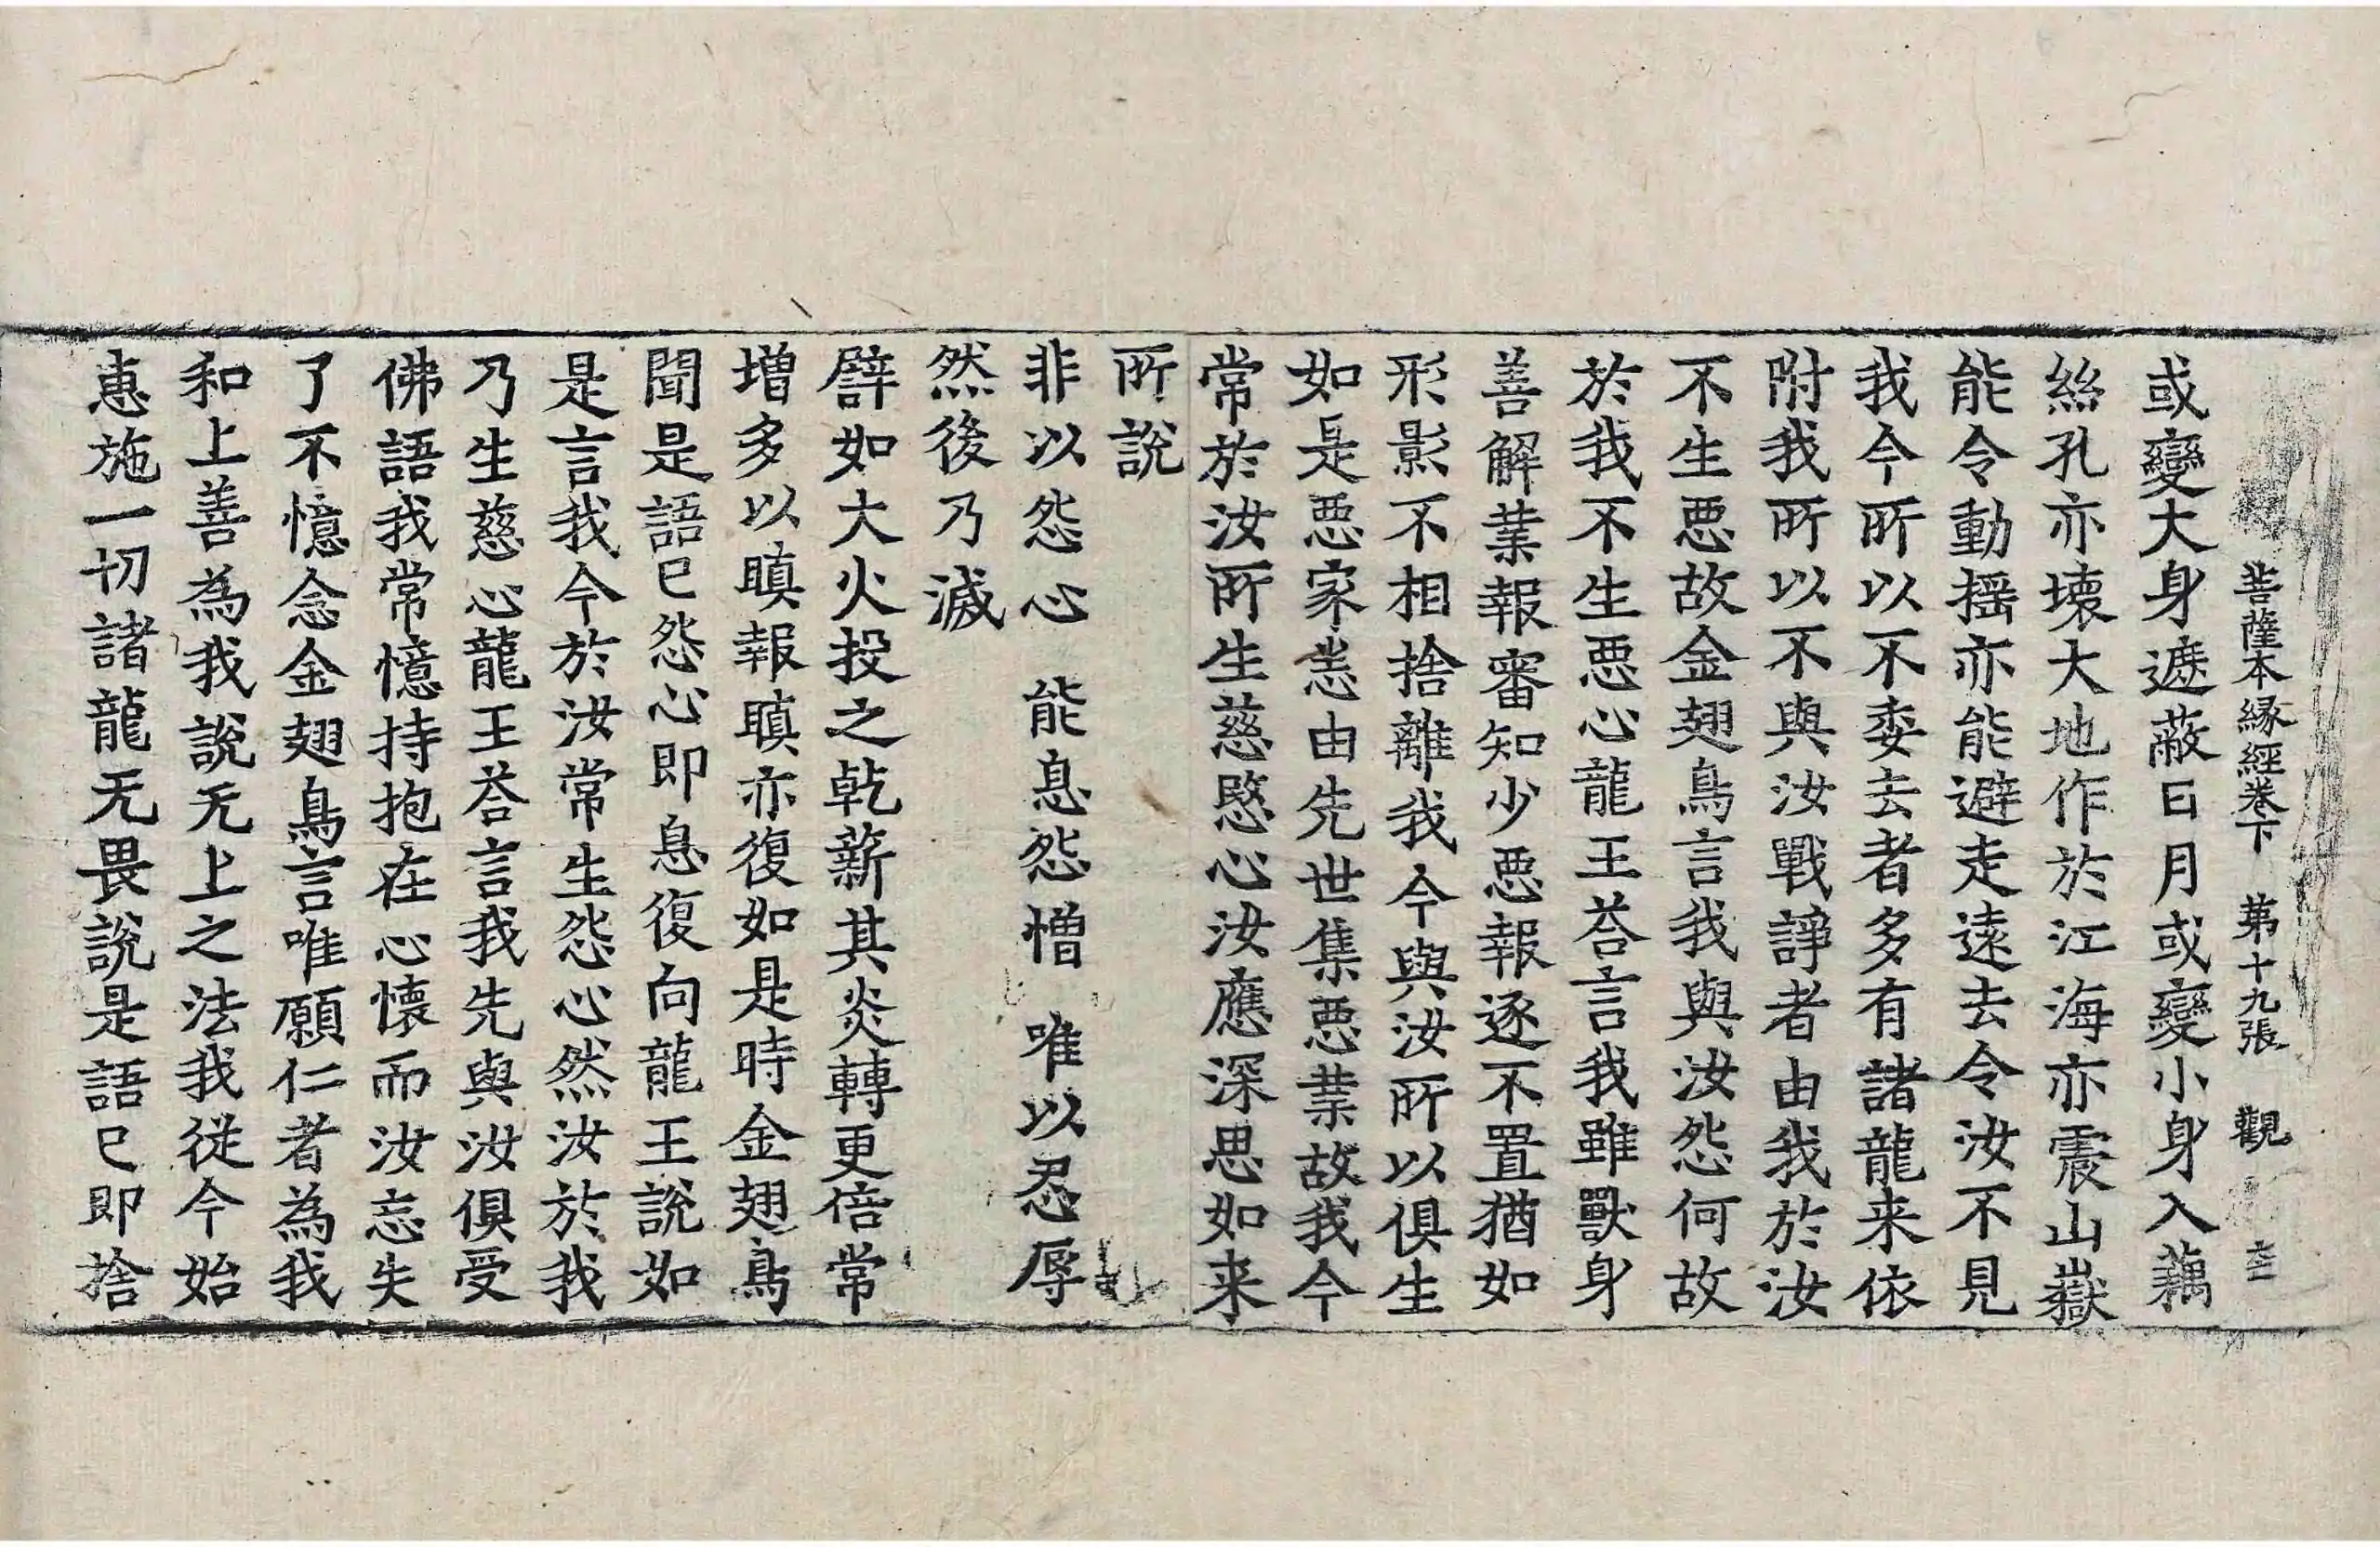 菩薩本緣經卷下 第十九張 觀
或變大身遮蔽日月或變小身入藕
絲孔亦壞大地作於江海亦震山嶽
能令動揺亦能避走遠去令汝不見
我今所以不委去者多有諸龍来依
附我所以不與汝戰諍者由我於汝
不生惡故金翅鳥言我與汝怨何故
於我不生惡心龍王荅言我雖獸身
善解業報審知少惡報逐不置猶如
形影不相捨離我今與汝所以俱生
如是惡家恙由先世集惡業故我今
常於汝所生慈愍心汝應深思如来
所說
非以怨心 能息怨憎 唯以忍辱
然後乃滅
譬如大火投之乾薪其炎轉更倍常
増多以瞋報瞋亦復如是時金翅鳥
聞是語已怨心即息復向龍王說如
是言我今於汝常生怨心然汝於我
乃生慈心龍王荅言我先與汝俱受
佛語我常憶持抱在心懷而汝忘失
了不憶念金翅鳥言唯願仁者為我
和上善為我說无上之法我從今始
惠施一切諸龍无畏說是語已即捨